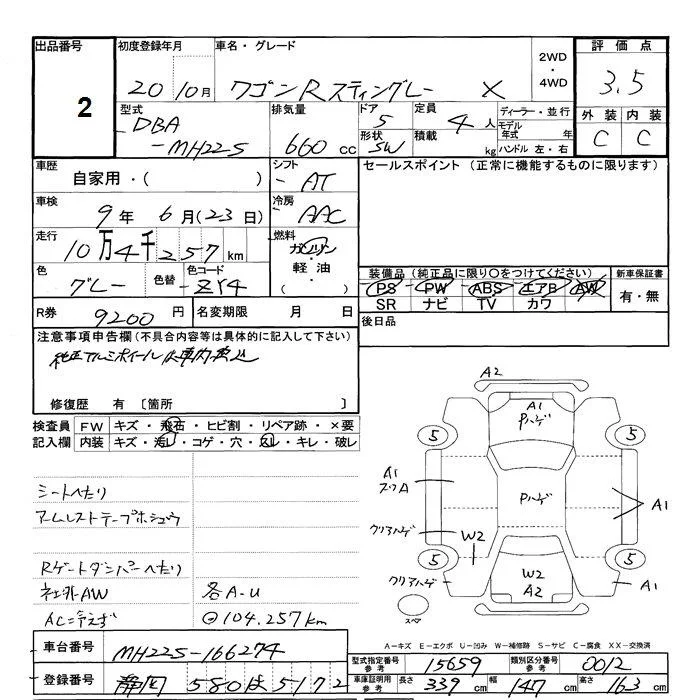 出品番号 初度登録年月 車名・グレード 2WD・4WD 評価点
2 20 10月 ワゴンRスティングレー X 3.5
型式 排気量 ドア 定員 ディーラー・並行 外装 内装
DBA-MH22S 660cc 5 4人 モデル年式 年 C C
形状 積載 kg ハンドル 左・右
SW
車歴 シフト セールスポイント (正常に機能するものに限ります)
自家用・( ) AT
車検 冷房
9年 6月(23日) AAC
走行 燃料
10万4千257km ガソリン・軽油・
色 色替 色コード 装備品 (純正品に限り○をつけてください) 新車保証書
グレー Z14 PS PW ABS エアB AW 有・無
SR ナビ TV カワ
R券 名変期限 月 日 後日品
9200円
注意事項申告欄 (不具合内容等は具体的に記入して下さい)
純正アルミホイールは車内積込
修復歴 有 〔箇所 〕
検査員 FW キズ・飛石・ヒビ割・リペア跡・×要
記入欄 内装 キズ・汚レ・コゲ・穴・スレ・キレ・破レ
シートへたり
アームレストテープホシュウ
Rゲートダンパーへたり
社外AW 各A-U
AC冷えず ◎104.257km
A2
A1
Pハゲ
5 5
A1
スリA
Pハゲ
A1
クリアハゲ
W2
5 5
クリアハゲ
W2
A2
A1
スペア
A-キズ E-エクボ U-凹み W-補修跡 S-サビ C-腐食 XX-交換済
車台番号 MH22S-166274
型式指定番号 参考 15659 類別区分番号 参考 0012
登録番号 静岡 580 は 5172
車庫証明用 参考 長さ 339cm 幅 147cm 高さ 163cm